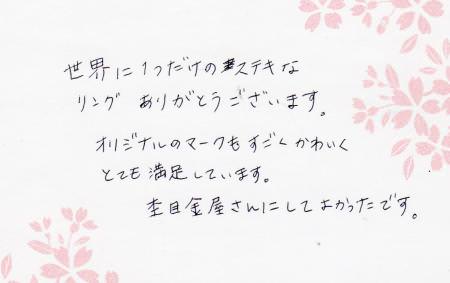 世界に1つだけのステキな
リング ありがとうございます。
オリジナルのマークもすごくかわいく
とても満足しています。
杢目金屋さんにしてよかったです。